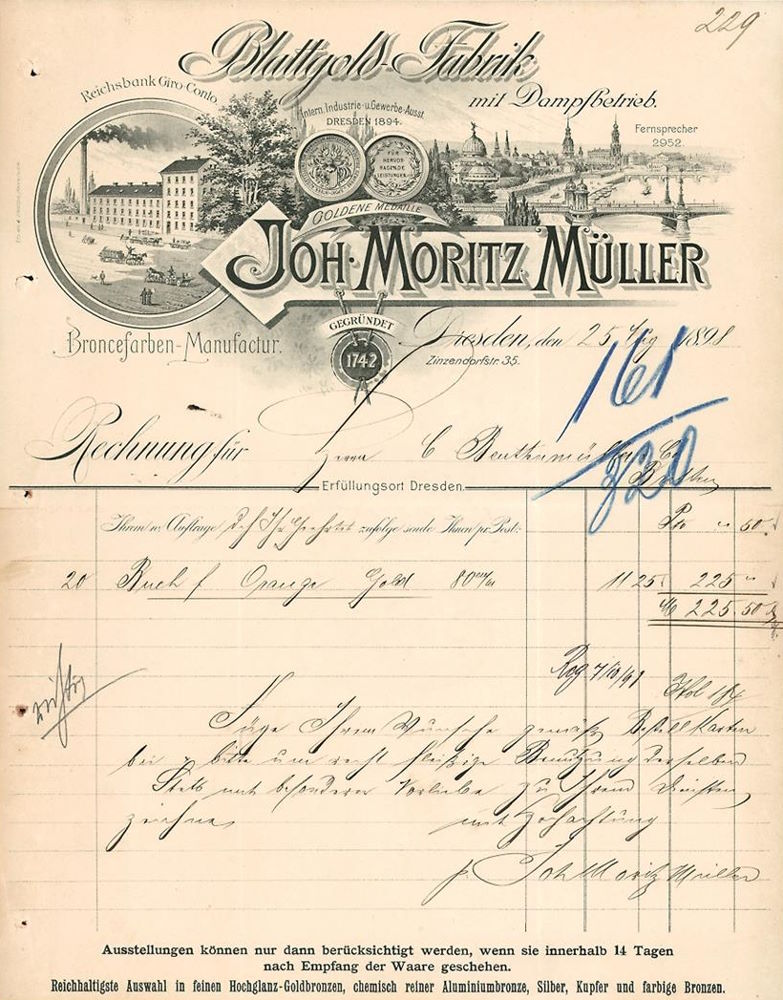 229
Blattgold-Fabrik
mit Dampfbetrieb.
Reichsbank Giro-Conto
Intern. Industrie- u. Gewerbe-Ausst.
DRESDEN 1894.
Fernsprecher
2952.
FÜR HERVORRAGENDE LEISTUNGEN
GOLDENE MEDAILLE
JOH. MORITZ MÜLLER
GEGRÜNDET
1742
Broncefarben-Manufactur.
Dresden, den 25 1898
Zinzendorfstr. 35.
161
320
Rechnung für Herrn C
Erfüllungsort Dresden.
Ihrem w. Auftrage zufolge sende Ihnen pr. Post: Pto " 50
20 Buch f Orange Gold 80 m/m 11 25 225 "
M 225.50
richtig
Füge Ihrem Wunsche gemäß Bestellkarten
bei u. bitte um recht fleißige Benutzung derselben
Stets mit besonderer Vorliebe zu Ihren Diensten
zeichne mit Hochachtung
p. Joh Moritz Müller
Ausstellungen können nur dann berücksichtigt werden, wenn sie innerhalb 14 Tagen
nach Empfang der Waare geschehen.
Reichhaltigste Auswahl in feinen Hochglanz-Goldbronzen, chemisch reiner Aluminiumbronze, Silber, Kupfer und farbige Bronzen.